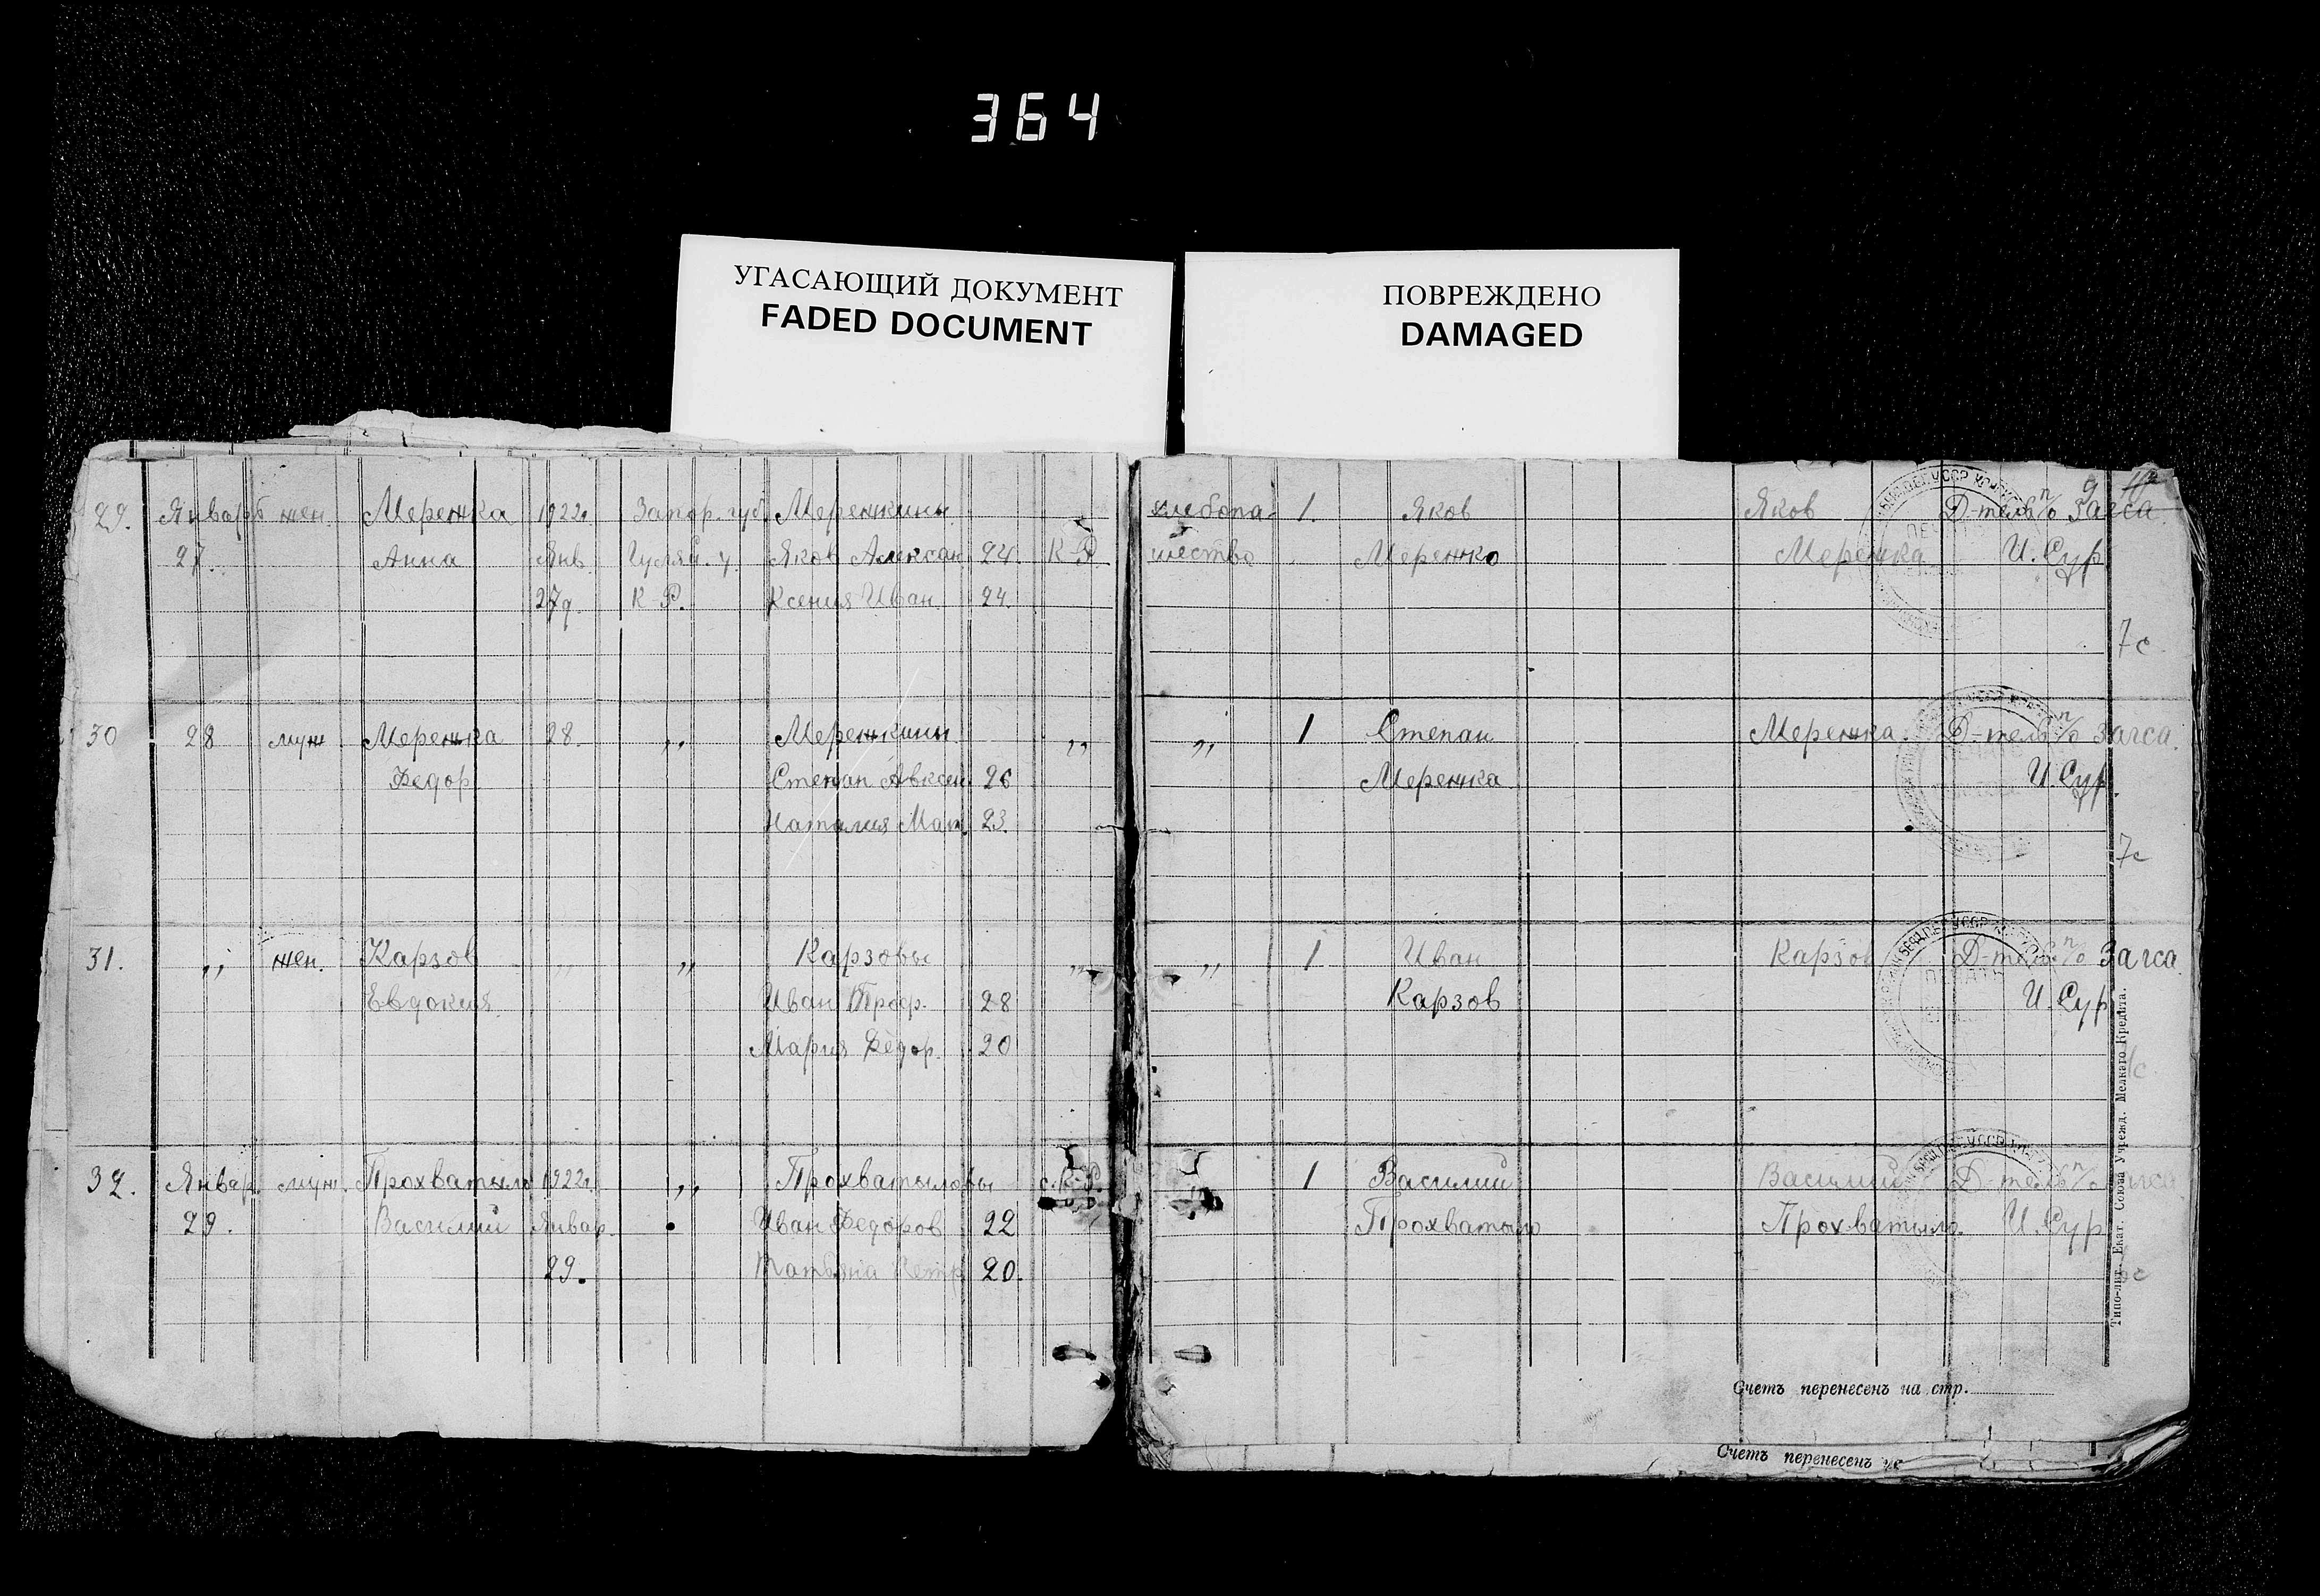 364
УГАСАЮЩИЙ ДОКУМЕНТ
FADED DOCUMENT
ПОВРЕЖДЕНО
DAMAGED
29. Январь жен. Мережка 1922г. Запор. губ. Мережкины хлебопа- 1. Яков Яков Д-тель п/о Загса
27. Анна Янв. Гуляй. у. Яков Алексан. 24. К-Р. шество Мережко Мережка И. Сур
27д. К-Р. Ксения Иван. 24.
7с
30 28 муж Мережка 28. ,, Мережкины ,, ,, 1 Степан Мережка. Д-тель п/о Загса.
Федор Степан Авксен. 26 Мережка И. Сур.
Наталия Мат. 23.
7с
31. ,, жен. Карзов ,, ,, Карзовы ,, ,, 1 Иван Карзов Д-тель п/о Загса
Евдокия Иван Троф. 28 Карзов И. Сур
Мария Федор. 20
32. Январ. муж. Прохватыло 1922г. ,, Прохватыловы с. К-Р. 1 Василий Василий Д-тель п/о Загса
29. Василий Январ. Иван Федоров 22 Прохватыло Прохватыло. И. Сур
29. Татьяна Петр. 20.
Типо-лит. Екат. Союза Учрежд. Мелкаго Кредита.
Счетъ перенесенъ на стр.
Счетъ перенесенъ